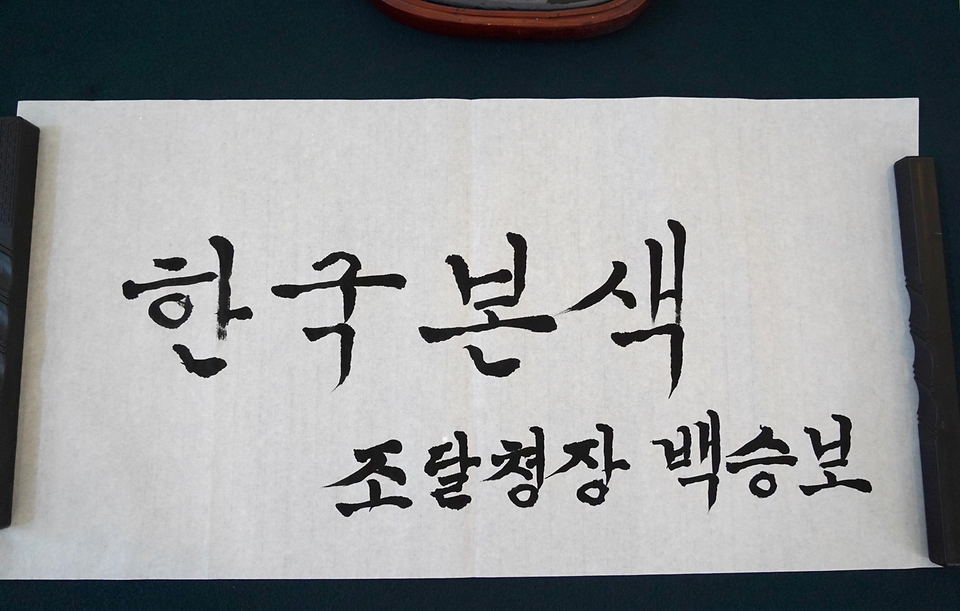 한국본색
조달청장 백승보